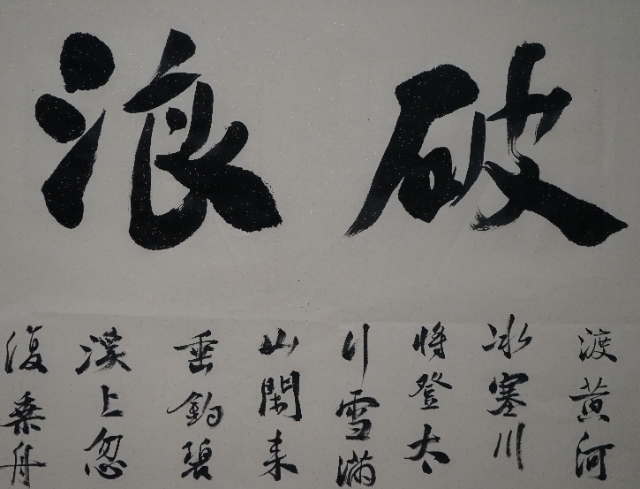 破浪
渡黄河
冰塞川
将登太
行雪滿
山閑来
垂釣碧
溪上忽
復乗舟